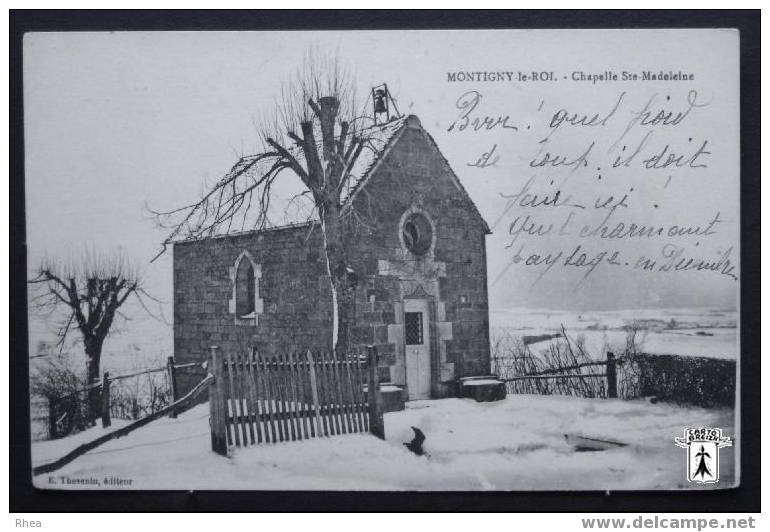 MONTIGNY-le-ROI. - Chapelle Ste-Madeleine
Brrr! quel froid
de loup, il doit
faire ici!
quel charmant
paysage. en Dernière
E. Thevenin, éditeur
CARTO
BREIZH
Rhea
http://www.cartobreizh.net